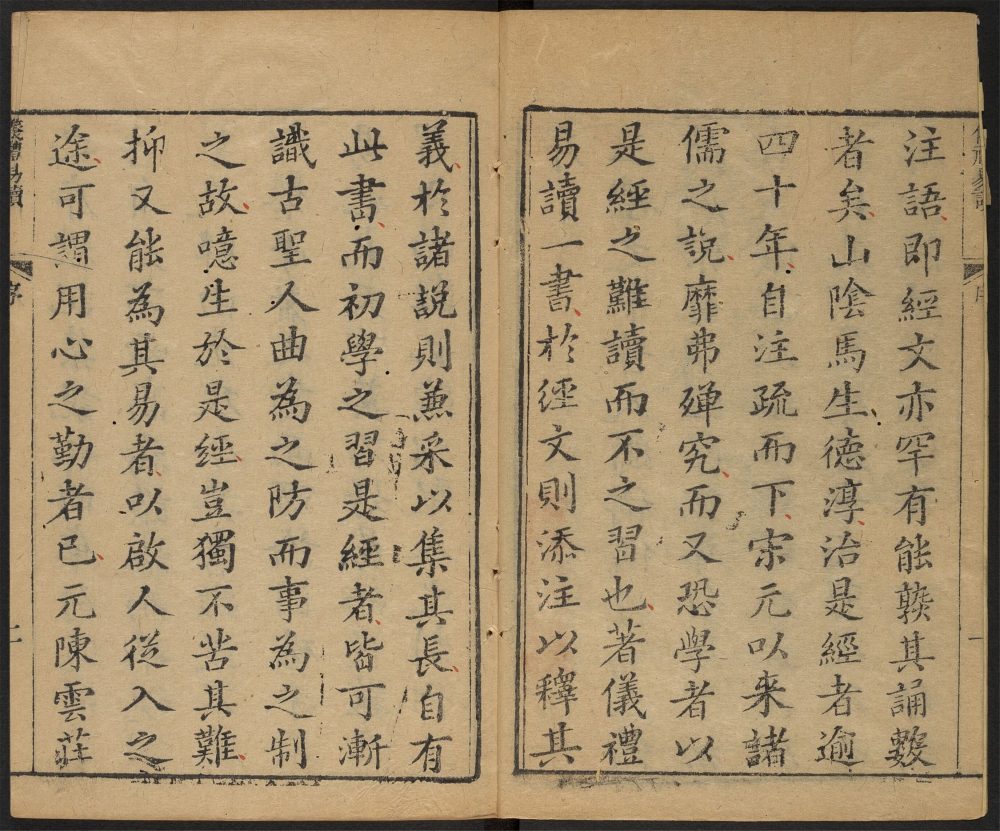 注語即經文亦罕有能蔾其誦數
者矣山陰馬生德淳治是經者逾
四十年自注疏而下宋元以来諸
儒之説靡弗殫究而又恐學者以
是經之難讀而不之習也著儀禮
易讀一書於經文則添注以釋其
義於諸説則兼采以集其長自有
此書而初學之習是經者皆可漸
識古聖人曲為之防而事為之制
之故噫生於是經豈獨不苦其難
抑又能為其易者以啟人從入之
途可謂用心之勤者已元陳雲莊
儀禮易讀
序
二